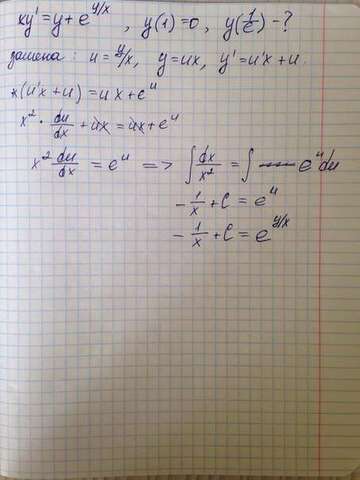 xy' = y + e^{y/x}, y(1) = 0, y(1/e) - ?
замена: u = y/x, y = ux, y' = u'x + u.
x(u'x + u) = ux + e^u
x² · du/dx + ux = ux + e^u
x² du/dx = e^u => ∫ dx/x² = ∫ e^u du
- 1/x + C = e^u
- 1/x + C = e^{y/x}